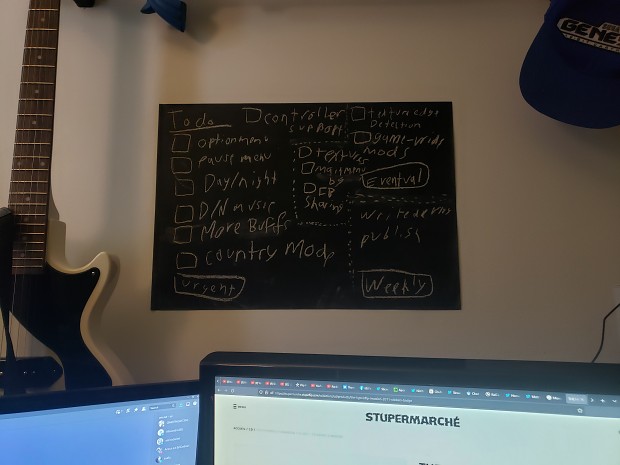 To do
option menu
pause menu
Day/night
D/N music
More Buffs
country Mode
urgent
controller
support
textures
mainmenu
bg
FB
sharing
texture edge
Detection
game-wide
mods
Eventual
write devlog
publish
Weekly
GENESIS
STUPERMARCHÉ